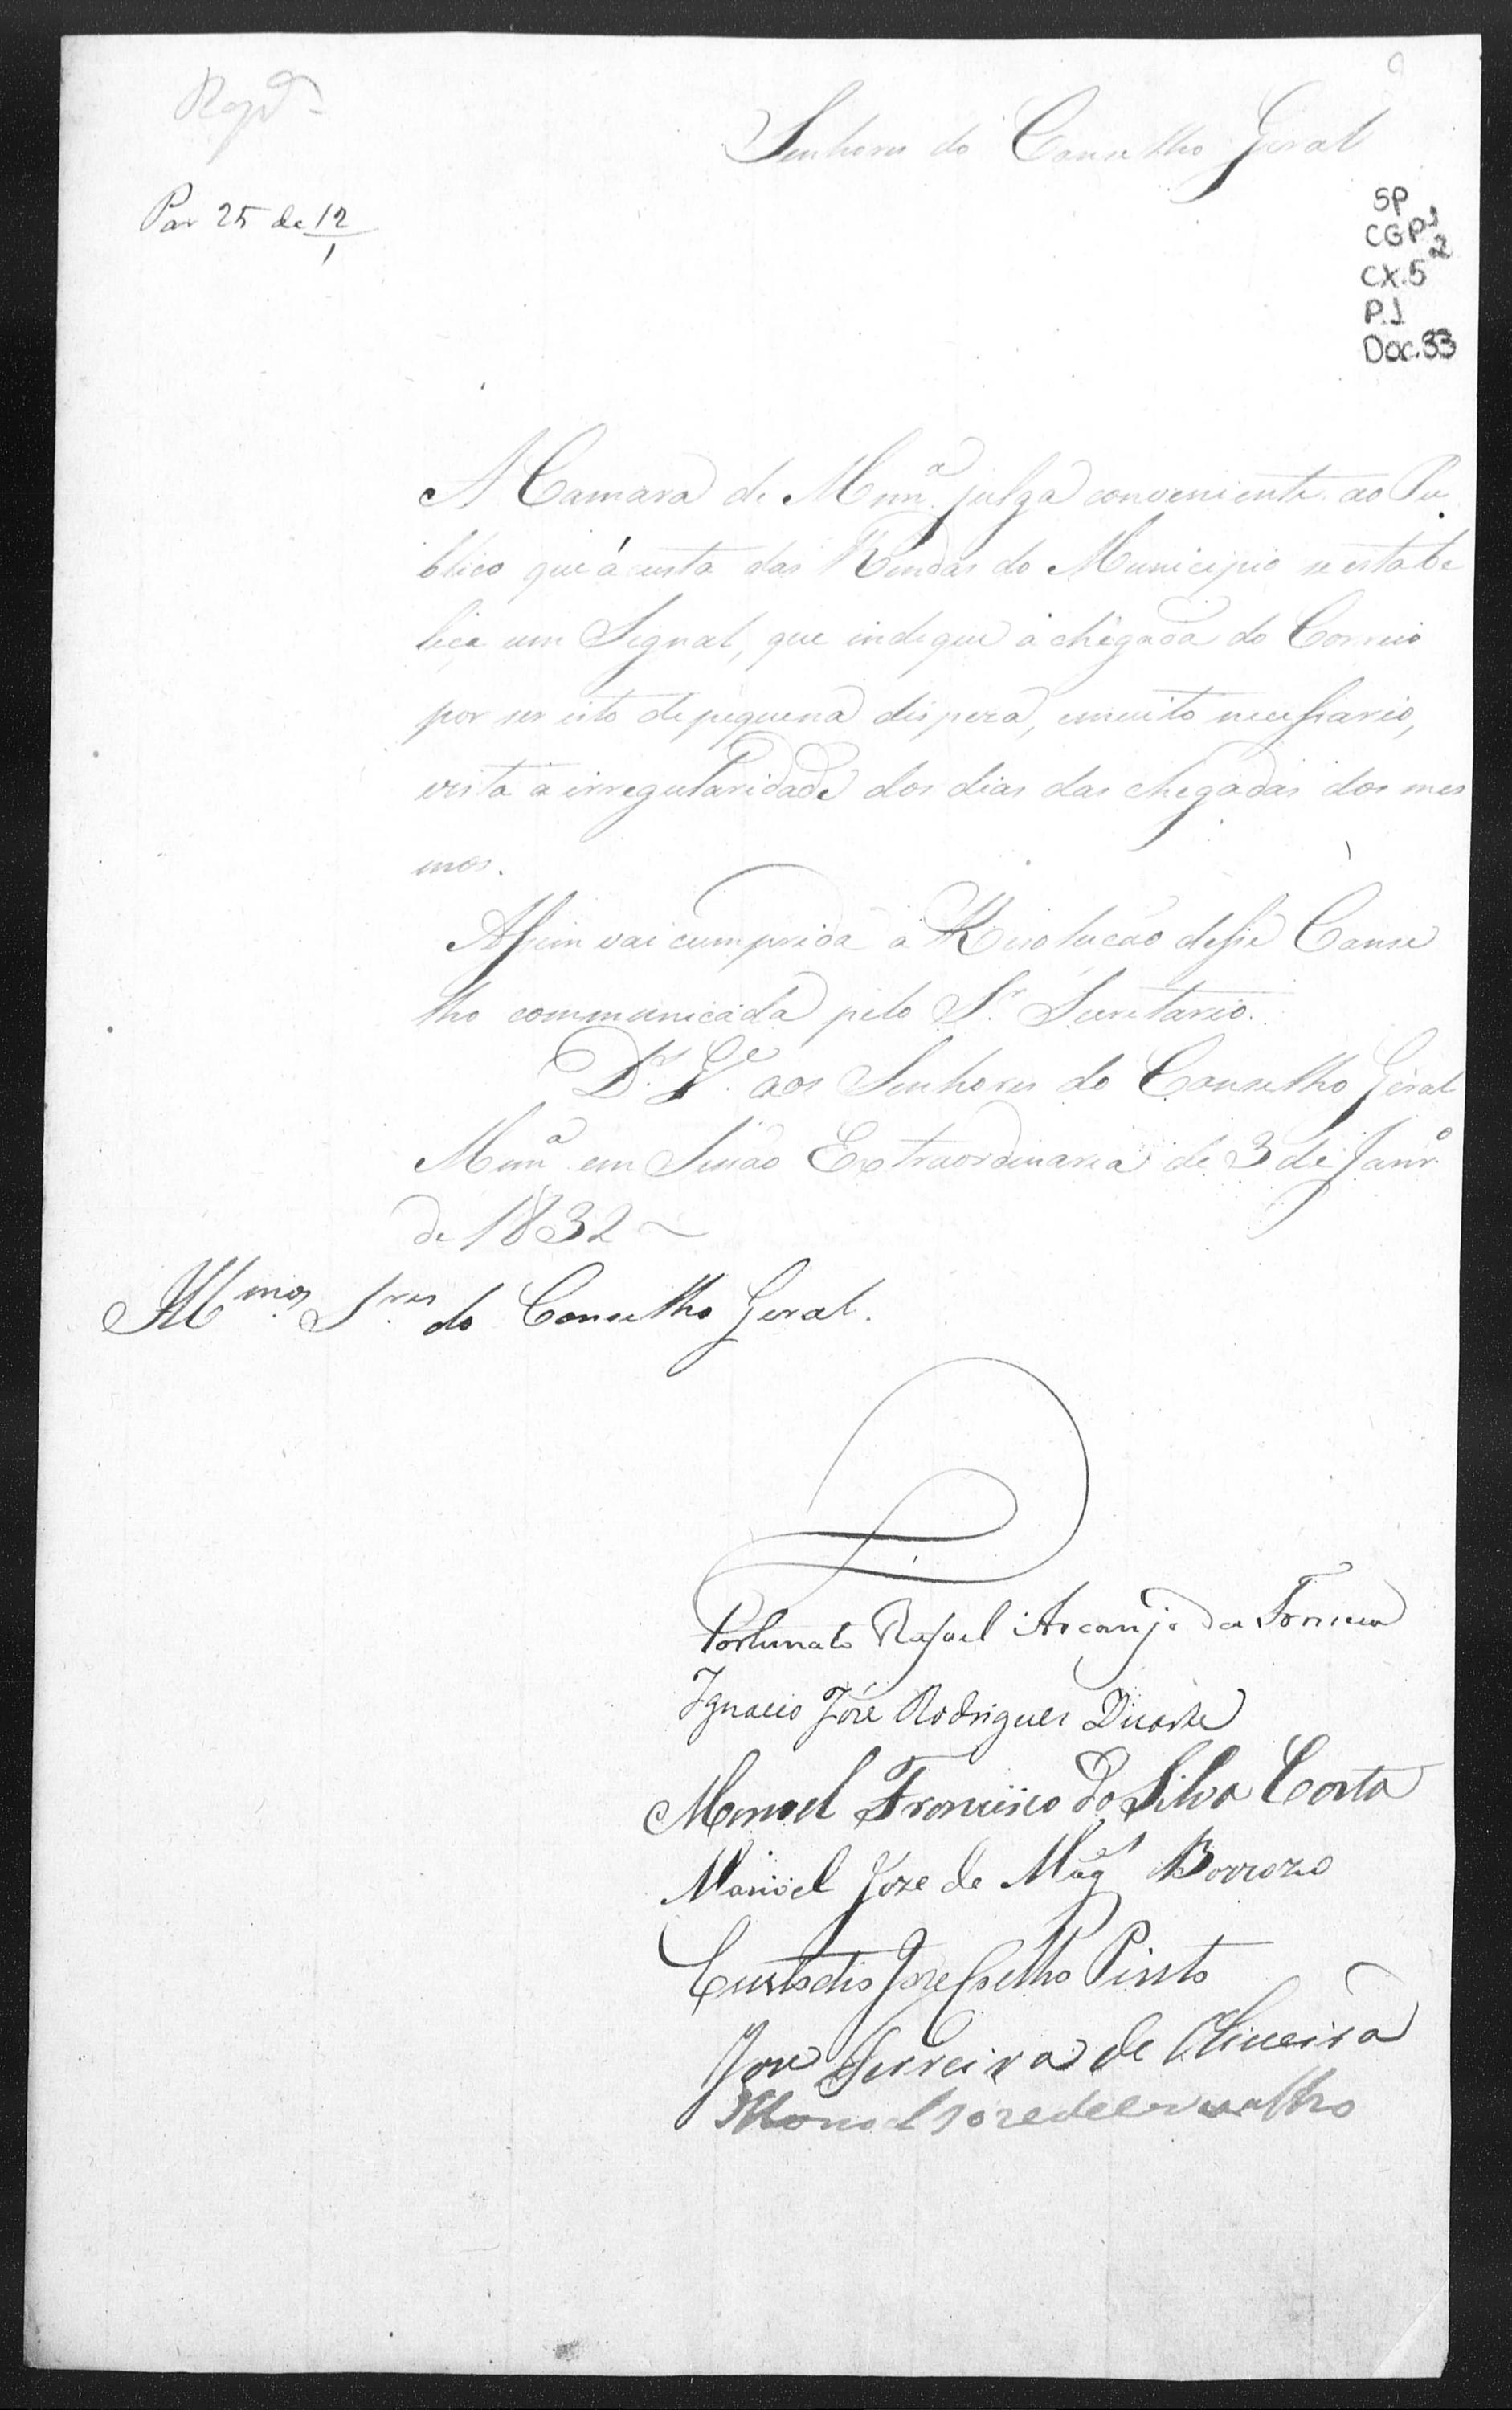 Reg.da
Senhores do Conselho Geral
Par 25 de 12
1
SP
CGP1
2
CX.5
P.1
Doc.33
A Camara de Mnna. julga conveniente ao Pu
blico que á custa das Rendas do Municipio se estabe
leça um Signal, que indeque a chegada do Correio
por ser isto de piquena dispeza, e muito necessario,
vista a irregularidade dos dias das chegadas dos mes
mos.
Assim vai cumprida a Rezolucão desse Conse
lho communicada pelo Sr. Secretario.
Ds. Ge. aos Senhores do Conselho Geral
Mnna em Sessão Extraordinaria de 3 de Janro.
de 1832
Illmos. Sres. do Conselho Geral.
Fortunato Rafael Arcanjo da Fonseca
Ignacio José Rodrigues Duarte
Manoel Francisco da Silva Costa
Manoel Joze de Mages Barrozo
Custodio Joze Coelho Pinto
Joze Ferreira de Oliveira
Manoel joze de carvalho